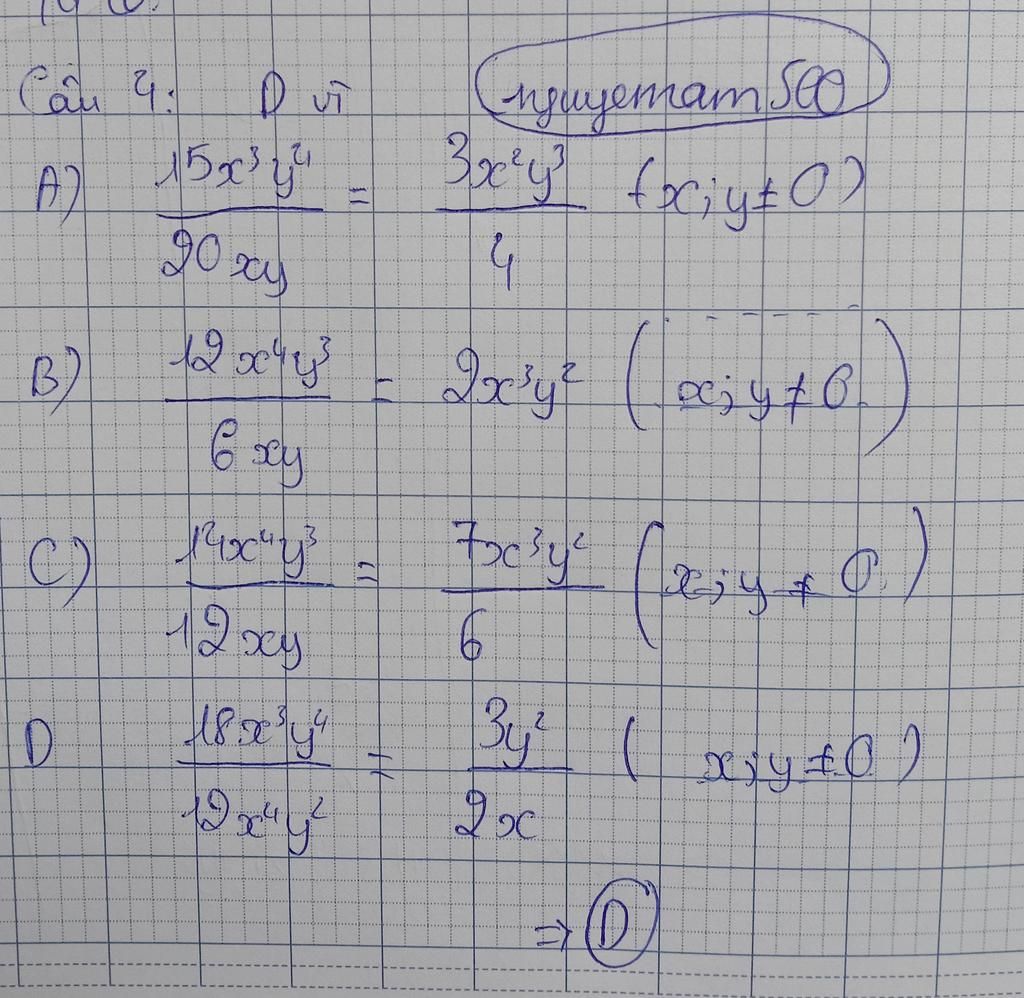 Câu 4: D vì nguyetnat500
A) 15x³y⁴/20xy = 3x²y³/4 (x; y ≠ 0)
B) 12x⁴y³/6xy = 2x³y² (x; y ≠ 0)
C) 14x⁴y³/12xy = 7x³y²/6 (x; y ≠ 0)
D 18x³y⁴/12x⁴y² = 3y²/2x (x; y ≠ 0)
⇒ D